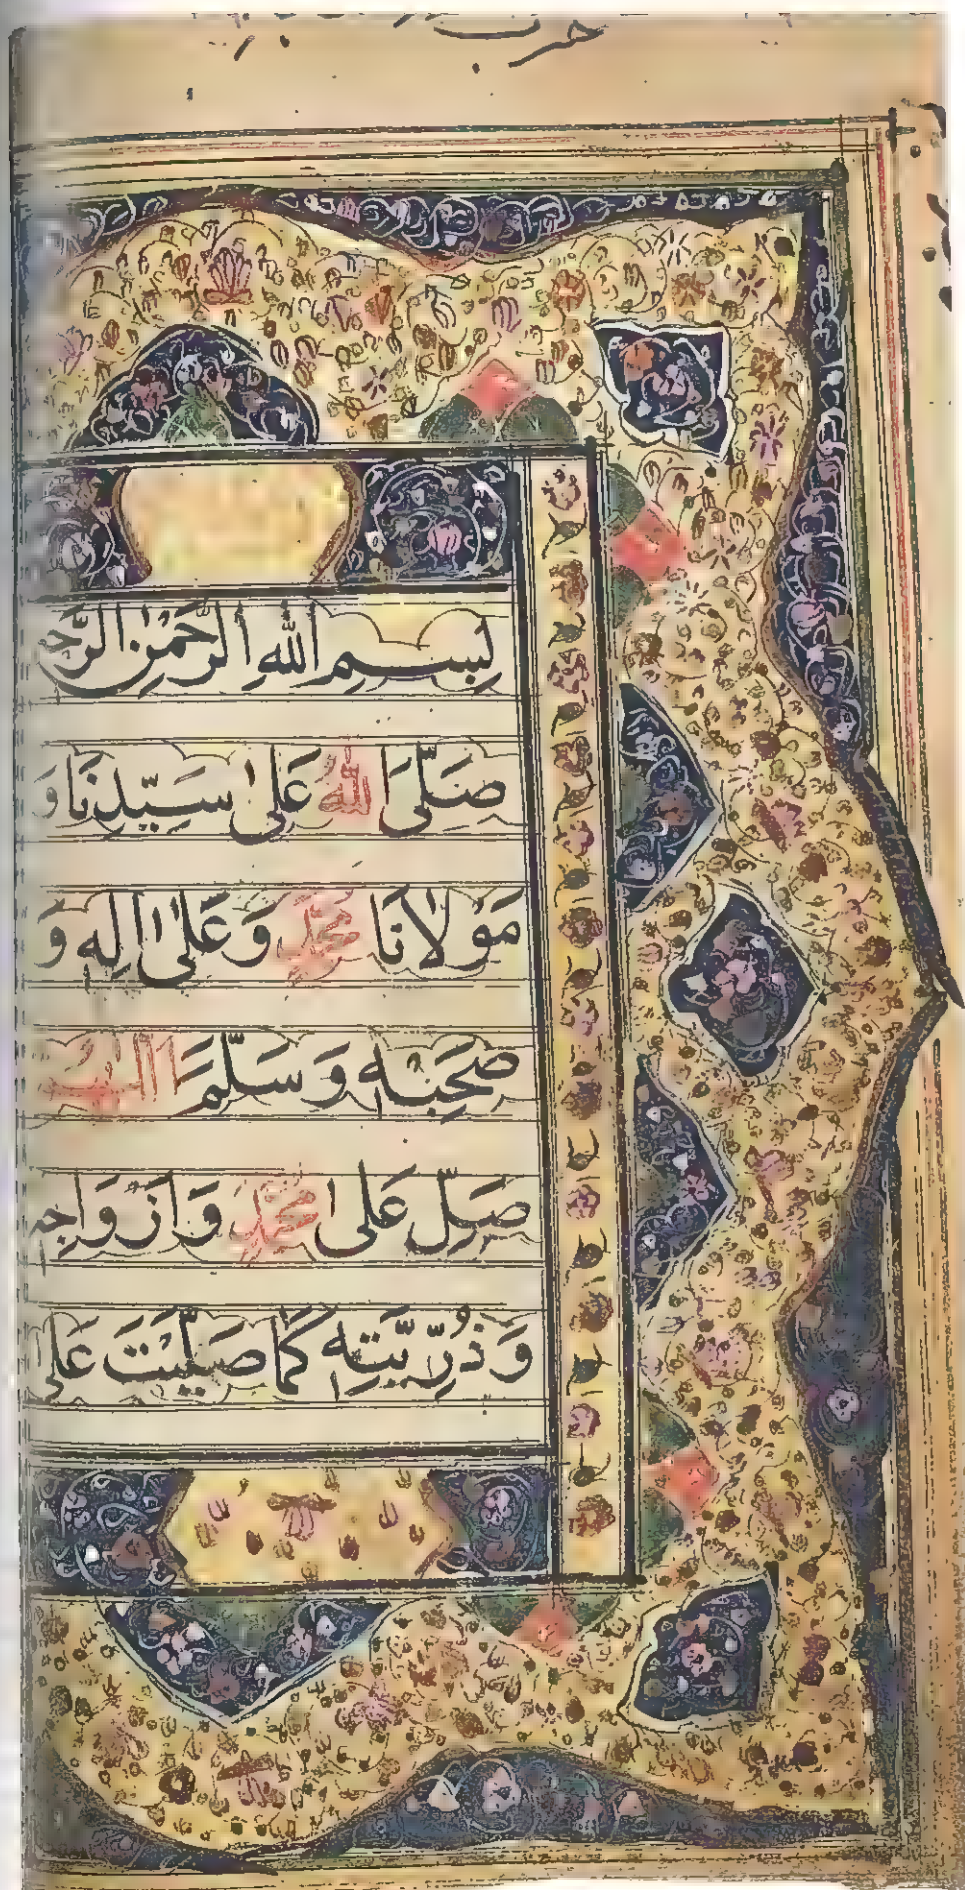 حزب
بِسْمِ اللهِ الرَّحْمٰنِ
صَلَّى اللهُ عَلٰى سَيِّدِنَا وَ
مَوْلَانَا مُحَمَّدٍ وَعَلٰى اٰلِهٖ وَ
صَحْبِهٖ وَسَلَّمَ اَللّٰهُمَّ
صَلِّ عَلٰى مُحَمَّدٍ وَاَزْوَاجِهٖ
وَذُرِّيَّتِهٖ كَمَا صَلَّيْتَ عَلٰى